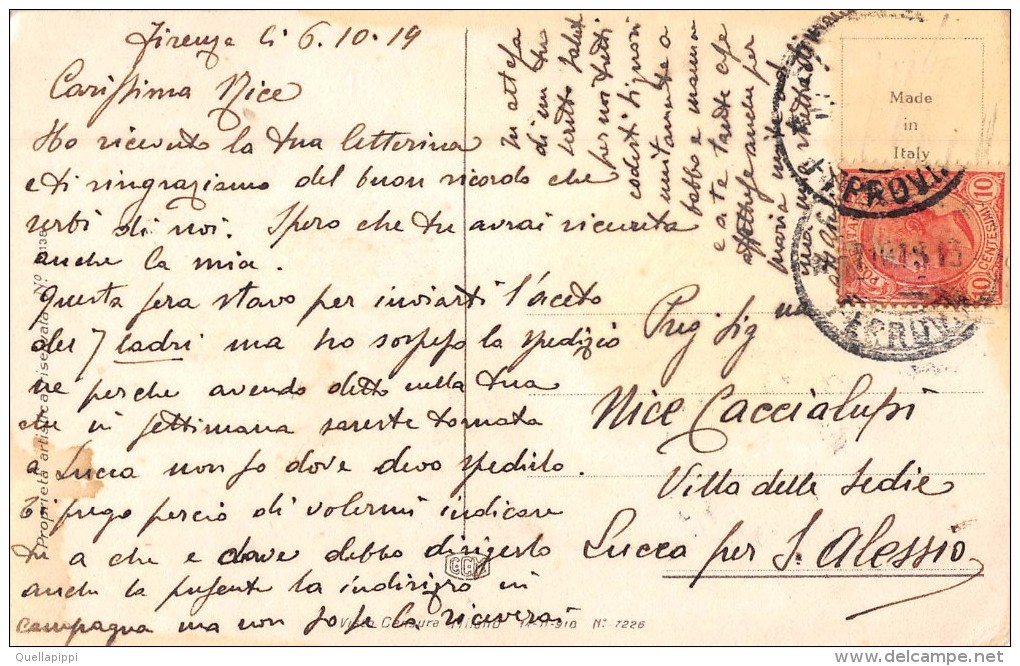 Firenze li 6.10.19
Carissima Nice
Ho ricevuto la tua letterina
e ti ringraziamo del buon ricordo che
serbi di noi. Spero che tu avrai ricevuta
anche la mia.
Questa sera stavo per inviarti l'aceto
dei 7 ladri ma ho sospeso la spedizio
ne perche avendo detto nella tua
che in settimana sareste tornata
a Lucca non so dove devo spedirlo.
Ti prego perciò di volermi indicare
a che e dove debbo dirigerlo
anche la presente la indirizzo in
campagna ma non so se la riceverai
In attesa
di un tuo
scritto saluti
per noi tutti
codesti signori
unitamente a
babbo e mamma
e a te tante cose
affettuose anche per
Preg. Sig.na
Nice Caccialupi
Villa delle Sedie
Lucca per S. Alessio
Made
in
Italy
10 CENTESIMI 10
POSTE
FERROVIA
Proprietà artistica riservata N.º
CCM
Visto Censura Milano 14-11-918 N. 7226
Quellapippi
delcampe.net